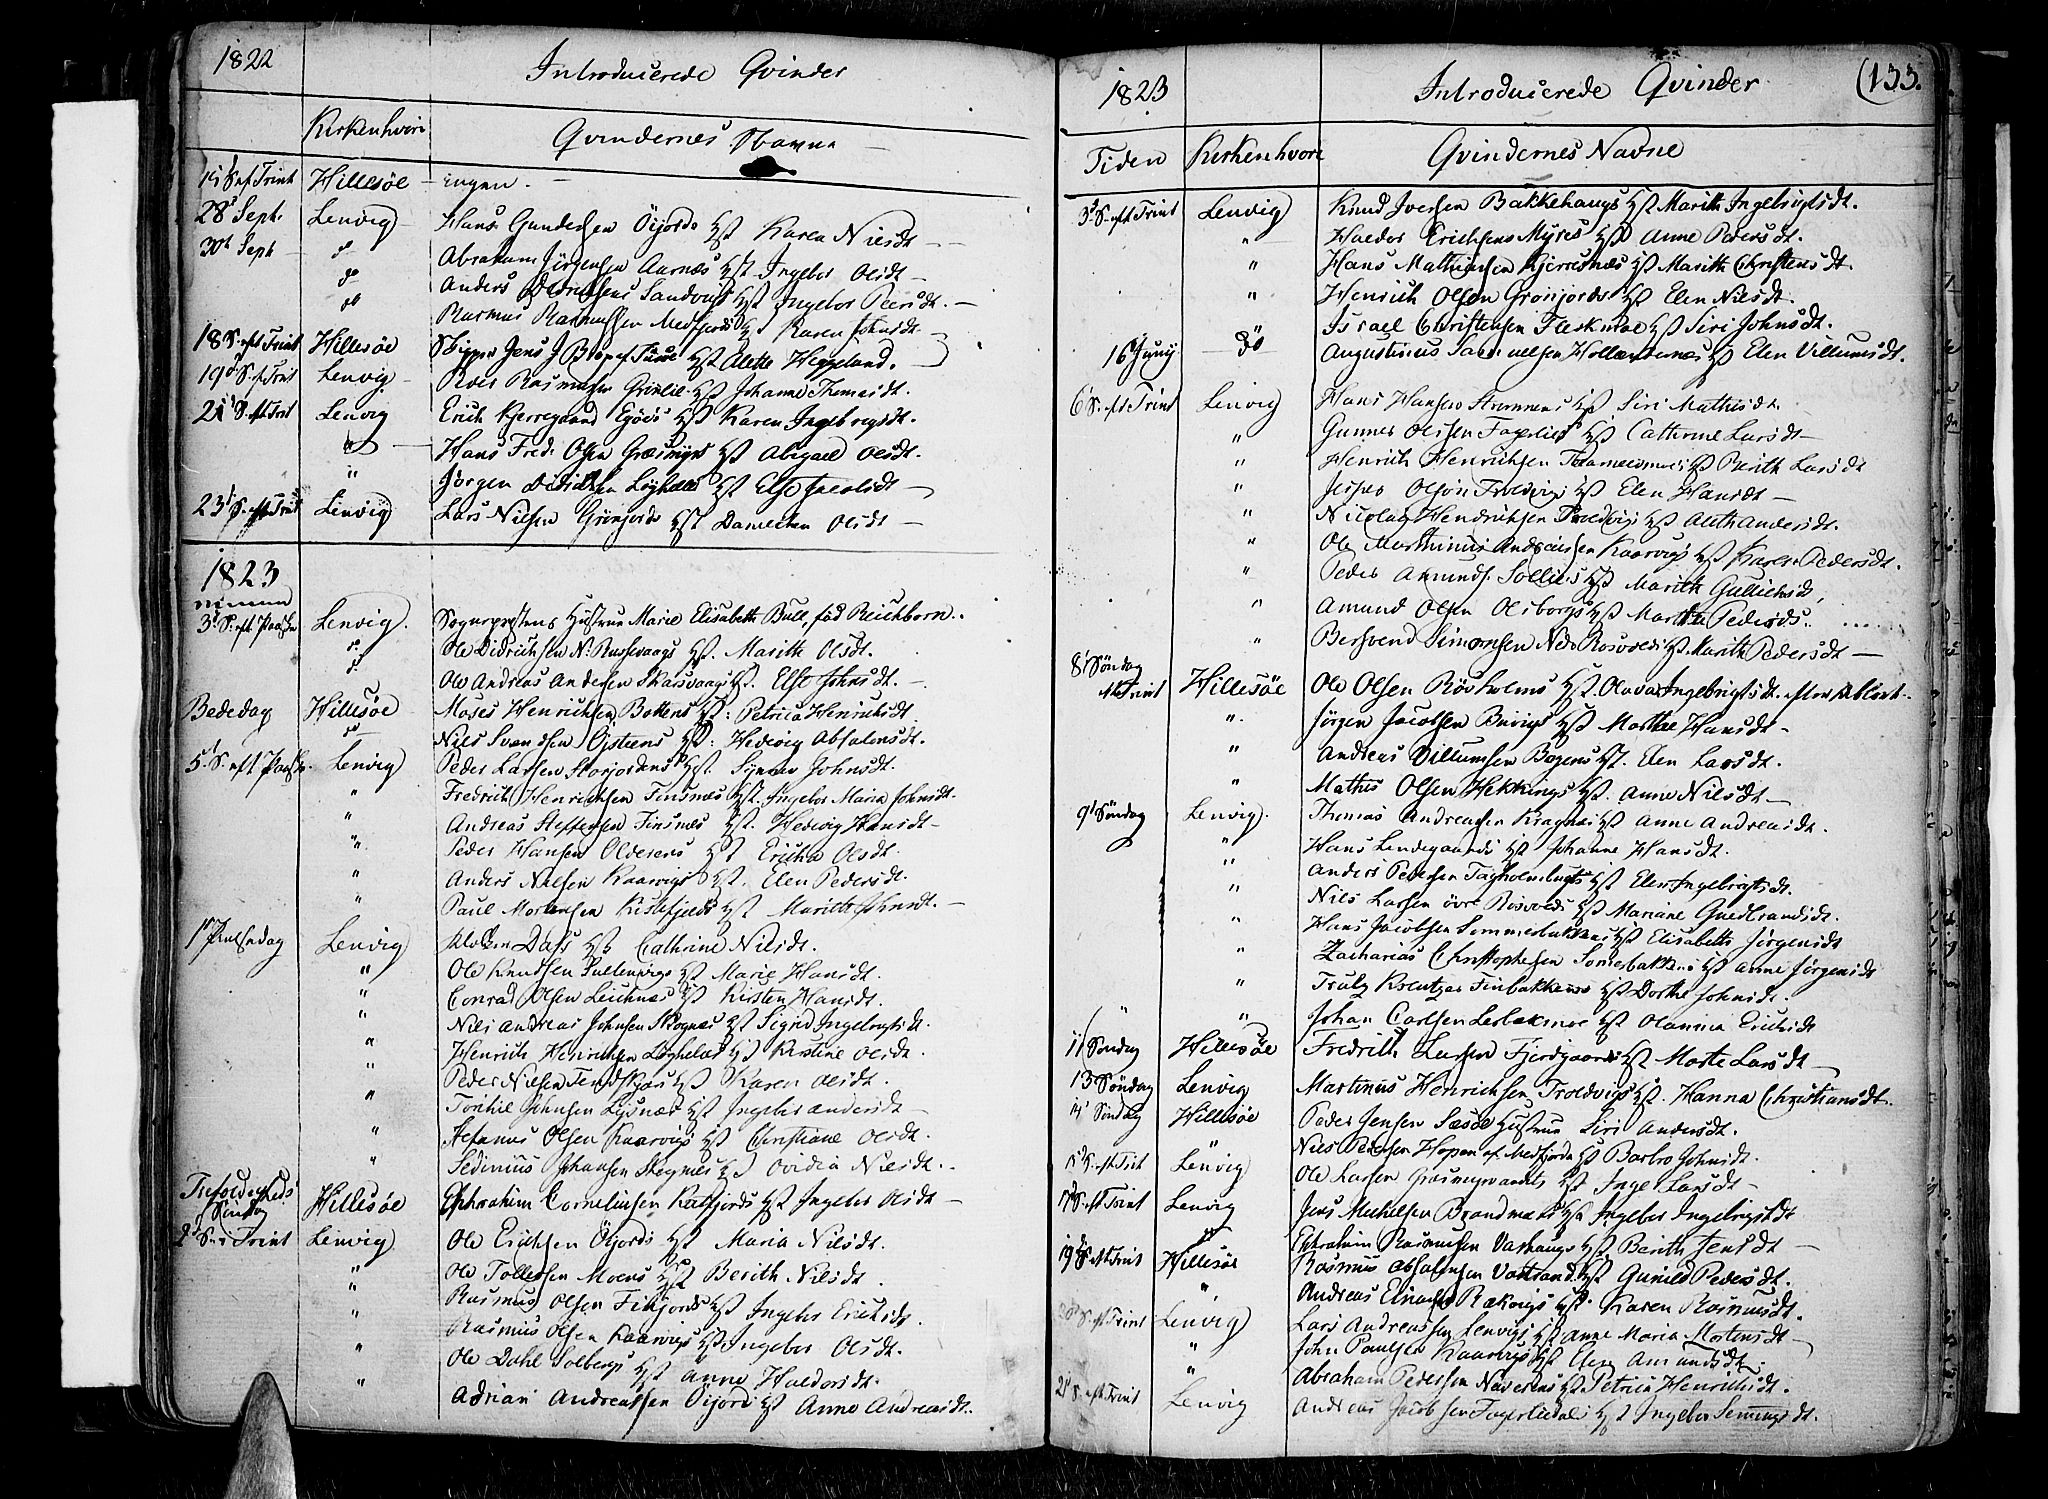 1822
Introducerede Qvinder
Kirkenhvori
Qvindernes Navne
Hillesøe – ingen. –
28 Sept. Lenvig Hans Gundersen Öijords Hst Karen Nielsdt – –
30t Sept – do Abraham Jörgensen Aarnæs Hst Ingebor Olsdt –
do Anders Didriksens Sandvigs Hst Ingebor Peersdt. –
do Rasmus Rasmussen Medfjords Hst Karen Johnsdt. –
18 S. eft Trint Hillesøe Skipper Jens J Hst Alette Heggeland.
19d S. ef Trint Lenvig Peder Rasmussen Hst Johanna Thomasdt.
21 S. eft Trint Lenvig Erich Kjerregaard Hst Karen Ingebregsdt.
" Hans Fred. Olsen Græsmyrs Hst Abigael Olsdt.
" Jörgen Didriksen Leghælls Hst Else Jacobsdt –
23 S. eft Trint Lenvig Lars Nielsen Grönjords Hst Olsdt –
1823
3d S. eft Paaske Lenvig Sogneprestens Hustrue Marie Elisabeth Bull, föd Buchborn.
do Ole Didrichsen N. Russevaags Hst. Marith Olsdt.
do Ole Andreas Andersen Skarsvaags Hst. Else Johnsdt. –
Bededag Hillesøe Moses Henrichsen Bottens Hst: Petrica Henrichsdt.
do Nils Svendsen Öisteens Hst: Hedevig Absalonsdt.
5t S. eft Paaske. Lenvig Peder Larsen Storjordens Hst. Synnev Johnsdt.
" Fredrich Henrichsen Finsnæs Hst. Ingebor Maria Johnsdt.
" Andreas Steffensen Finsnæs Hst. Hedevig Hansdt –
" Peder Hansen Hst Ericha Olsdt.
" Anders Nielsen Kaarvigs Hst. Elen Pedersdt.
" Paul Mortensen Kistefjelds Hst Marith Johnsdt. –
1t Pintsedag Lenvig Klokker Dass Hst Cathrine Nilsdt.
" Ole Knudsen Hst Marie Hansdt.
" Conrad Olsen Leiknæs Hst Kirsten Hansdt.
" Nils Andreas Johnsen Skognæs Hst Sigrid Ingebrigtsdt.
" Henrich Henrichsen Leghælas Hst Kirstine Olsdt.
" Peder Nielsen Tendskjærs Hst Karen Olsdt.
" Torkil Johnsen Lysnæs Hst Ingebor Andersdt –
" Stefanus Olsen Kaarvigs Hst Christiane Olsdt.
" Sedinius Johansen Skognæs Hst Ovidia Nielsdt. –
Trefoldigheds Söndag Hillesøe Ephrahim Corneliusen Kattfjords Hst Ingebor Olsdt –
2d S. eft Trint Lenvig Ole Erichsen Öijords Hst Maria Nilsdt.
" Ole Tollefsen Moens Hst Berith Nilsdt.
" Rasmus Olsen Finfjords Hst Ingebor Erichsdt.
" Rasmus Olsen Kaarvigs Hst Ingebor Olsdt.
" Ole Dahl Solbergs Hst Anne Haldorsdt.
" Adrian Andreassen Öijord Hst Anne Andreasdt.
1823
Introducerede Qvinder
(133.
Tiden Kirkenhvori Qvindernes Navne
3d S. eft Trint Lenvig Knud Iversen Bakkehaugs Hst Marith Ingebrigtsdt.
" Haldor Erichsens Myres Hst Anne Pedersdt.
" Hans Mathiasen Kjerresnæs Hst Marith Christensdt.
" Henrich Olsen Grönjords Hst Elen Nilsdt.
" Israel Christensen Fleskmoe Hst Siri Johnsdt.
16 Juny do Augustinus Samuelsen Hollændernæs Hst Elen Villumsdt.
6t S. eft Trint Lenvig Hans Hansen Strømmens Hst. Siri Mathisdt.
" Gunner Olssen Fagerlies Hst Cathrine Larsdt –
" Henrich Henrichsen Hst Berith Larsdt
" Jesper Olsön Troldvigs Hst Elen Hansdt –
" Nicolay Hendrichsen Troldvigs Hst Aleth Andersdt.
" Ole Marthinus Andreassen Kaarvigs Hst Karen Pedersdt.
" Peder Amunds. Sollies Hst Marith Gullichsdt.
" Amund Olsen Olsborgs Hst Martha Pedersdt.
" Bersvend Simonsen Nedr Rosvolds Hst Marith Pedersdt –
8t Söndag eft Trint Hillesøe Ole Olsen Rösholms Hst. Olava Ingebrigtsdt. efter Abbort.
" Jörgen Jacobsen Buvigs Hst Marthe Hansdt –
" Andreas Villumsen Bogens Hst. Elen Larsdt.
" Mathis Olsen Hekkings Hst. Anne Nilsdt –
9t Söndag Lenvig. Thomas Andreasen Kragnæs Hst Anne Andreasdt.
" Hans Lindegaards Hst Johanne Hansdt.
" Anders Pedersen Hst Elen Ingebrigtsdt.
" Nils Larsen övre Rosvolds Hst Mariane Guldbrandsdt.
" Hans Jacobsen Sommerbakkens Hst Elisabeth Jörgensdt
" Zacharias Christophersen Somerbakkens Hst Anne Jörgensdt
" Truls Kreutzer Finbakkens Hst Dorthe Johnsdt.
" " Johan Carlsen Hst Olamina Erichsdt
11 Söndag Hillesøe Fredrich Larsen Fjerdgaards Hst Marte Larsdt –
13 Söndag Lenvig Martinus Henrichsen Troldvigs Hst. Hanna Christiansdt.
14 Söndag Hillesøe Peder Jensen Sæsöe Hustrue Siri Andersdt.
15 S. eft Trint Lenvig Nils Pedersen Hopen af Medfjorden Hst Barbro Johnsdt.
Ole Larsen Hst Inger Larsdt –
17d S. eft Trint Lenvig Jens Michelsen Brandmæls Hst Ingebor Ingebrigtsdt
19d S. eft Trint Hillesøe Ephrahim Rasmussen Vashaugs Hst Berith Jensdt –
Rasmus Absalonsen Vattrand Hst Gunild Pedersdt.
" Andreas Einarsen Rækvigs Hst. Karen Rasmusdt.
S. eft Trint Lenvig Lars Andreassen Lenvigs Hst Anne Maria Mortensdt –
" John Paulsen Kaarvigs Hst Elen Amundsdt.
" Abraham Pedersen Hst Petrica Henrichsdt.
21 S. eft Trint Lenvig Andreas Jacobsen Fagerlidal Hst Ingebor Semmingsdt.